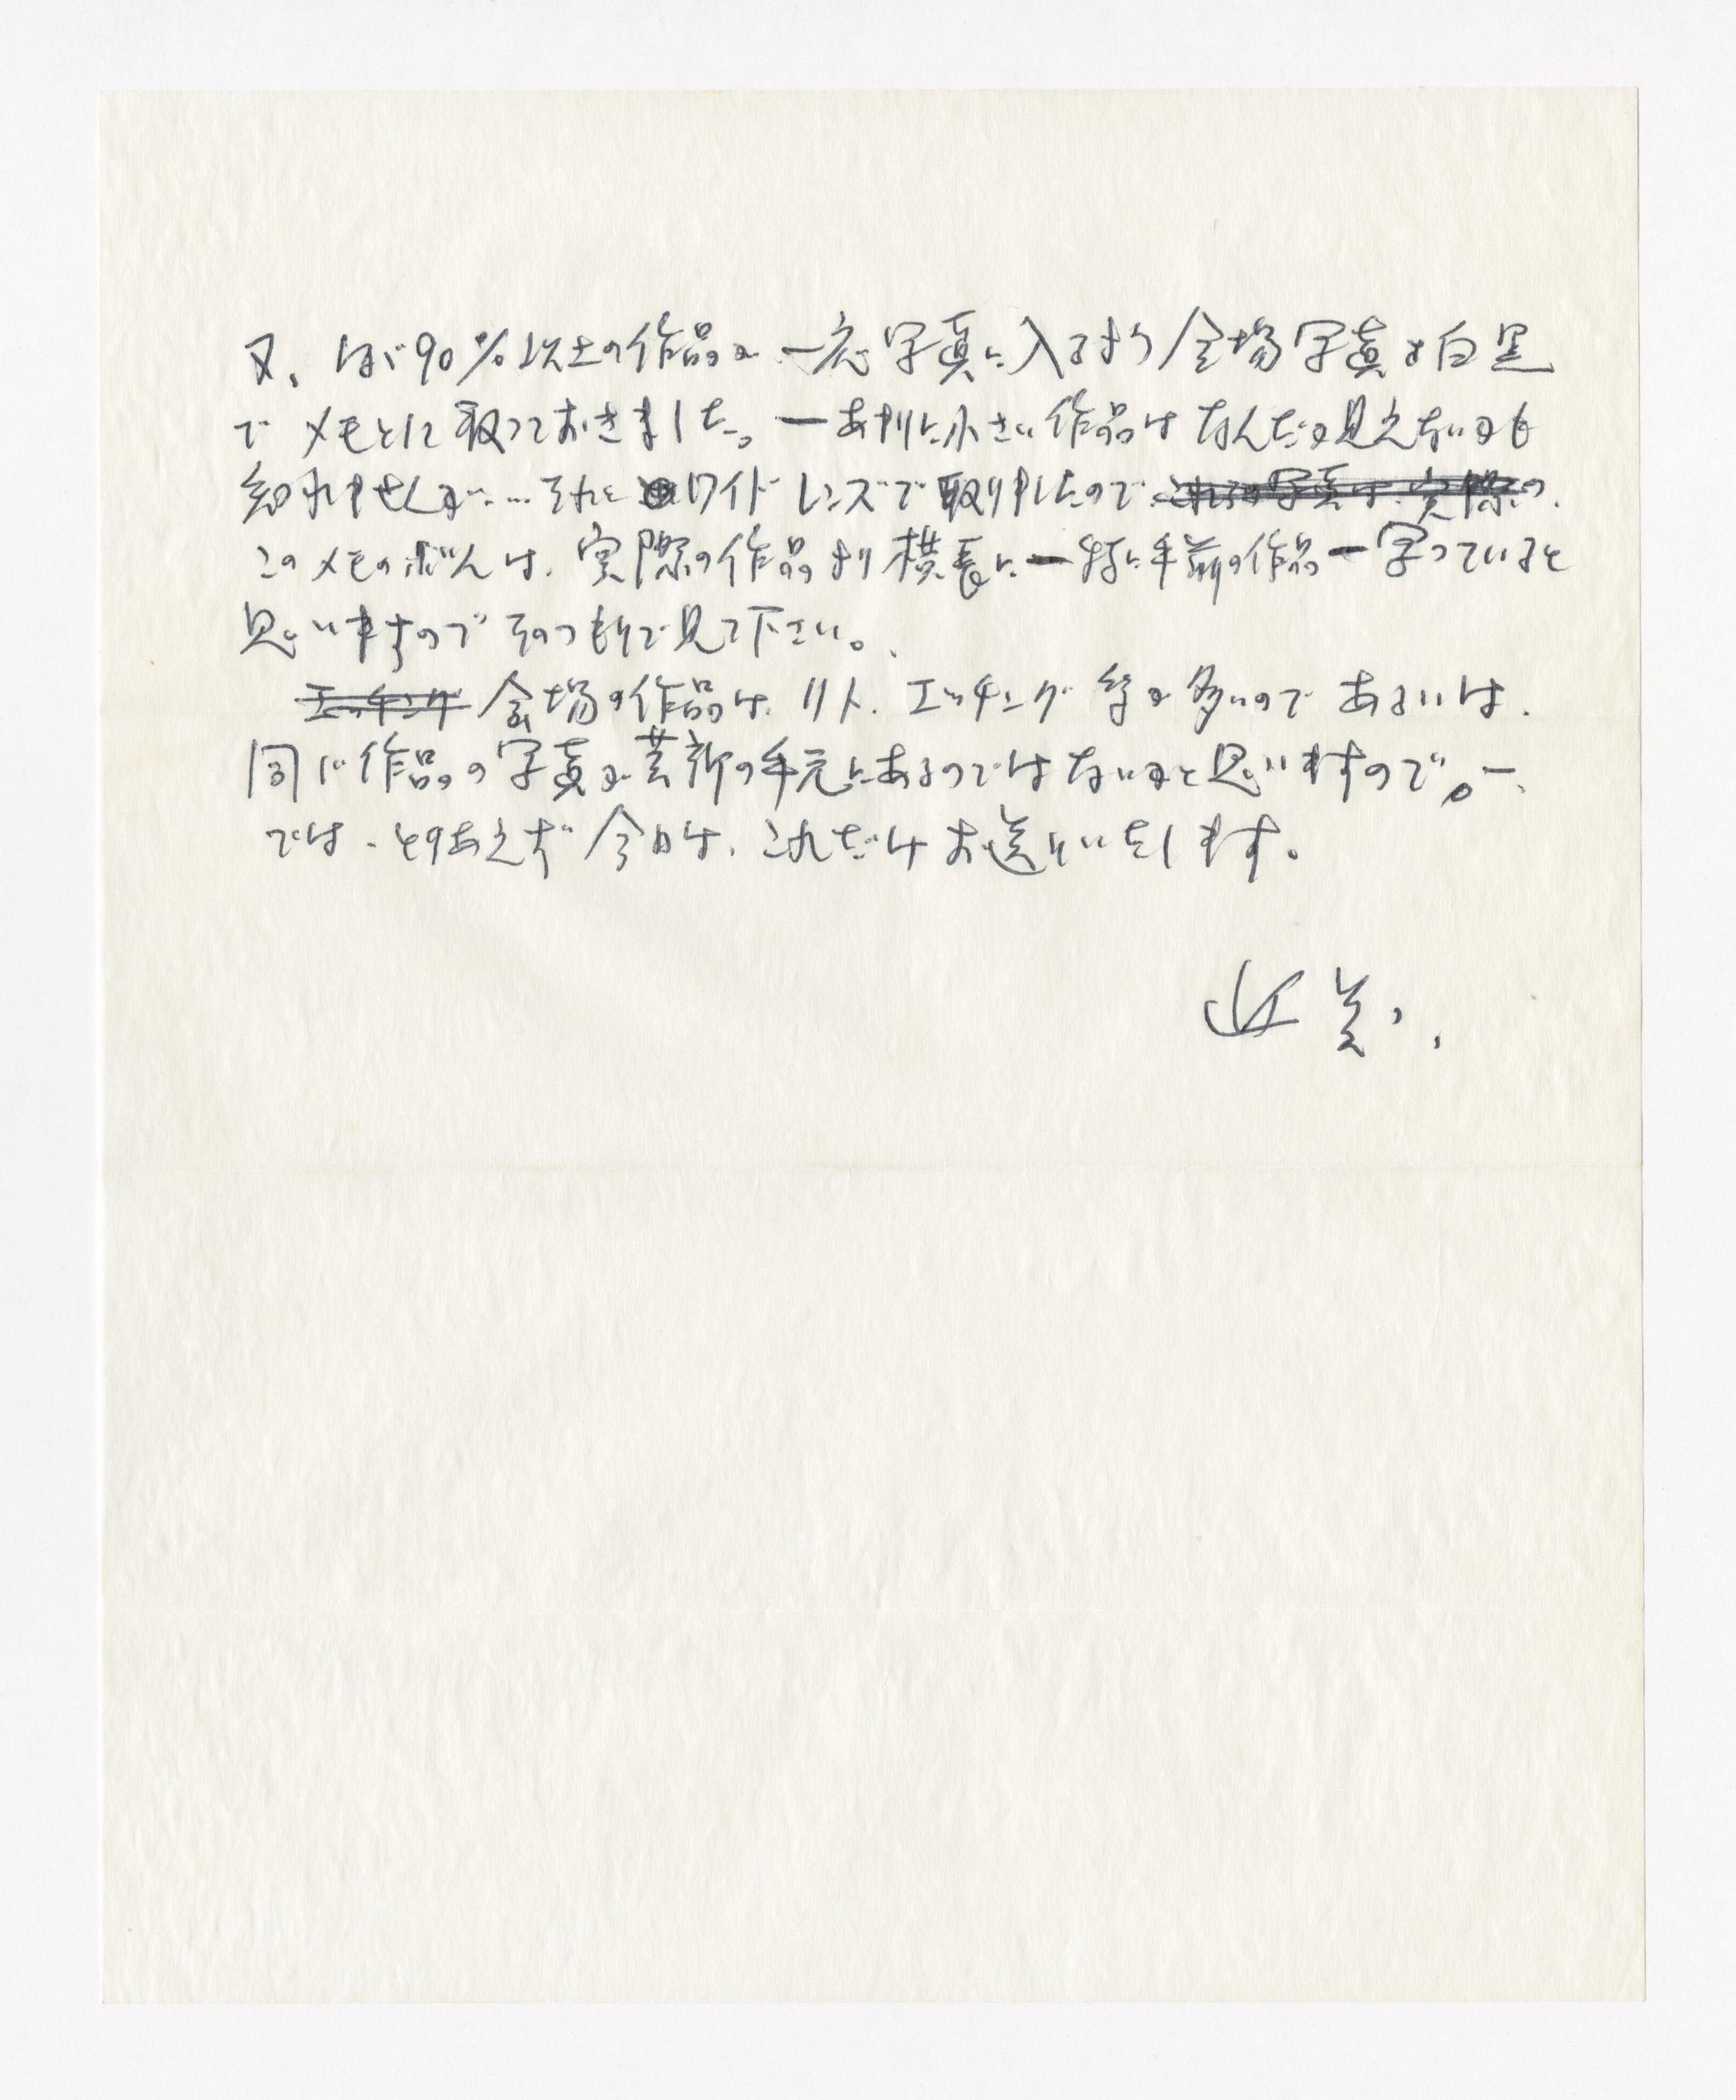 又、ほゞ90%以上の作品が一応写真に入るよう会場写真を白黒
でメモとして取っておきました。ーあまりに小さい作品はなんだか見えないかも
知れませんが…それとワイドレンズで取りましたので これらの写真は、実際の
このメモの ぶんは、実際の作品より横長にー特に手前の作品ー写っていると
思いますのでそのつもりで見て下さい。
エッチング 会場の作品は、リト、エッチング等が多いので あるいは、
同じ作品の写真が芸新の手元にあるのではないかと思いますので。ー、
では、とりあえず今日は、これだけお送りいたします。